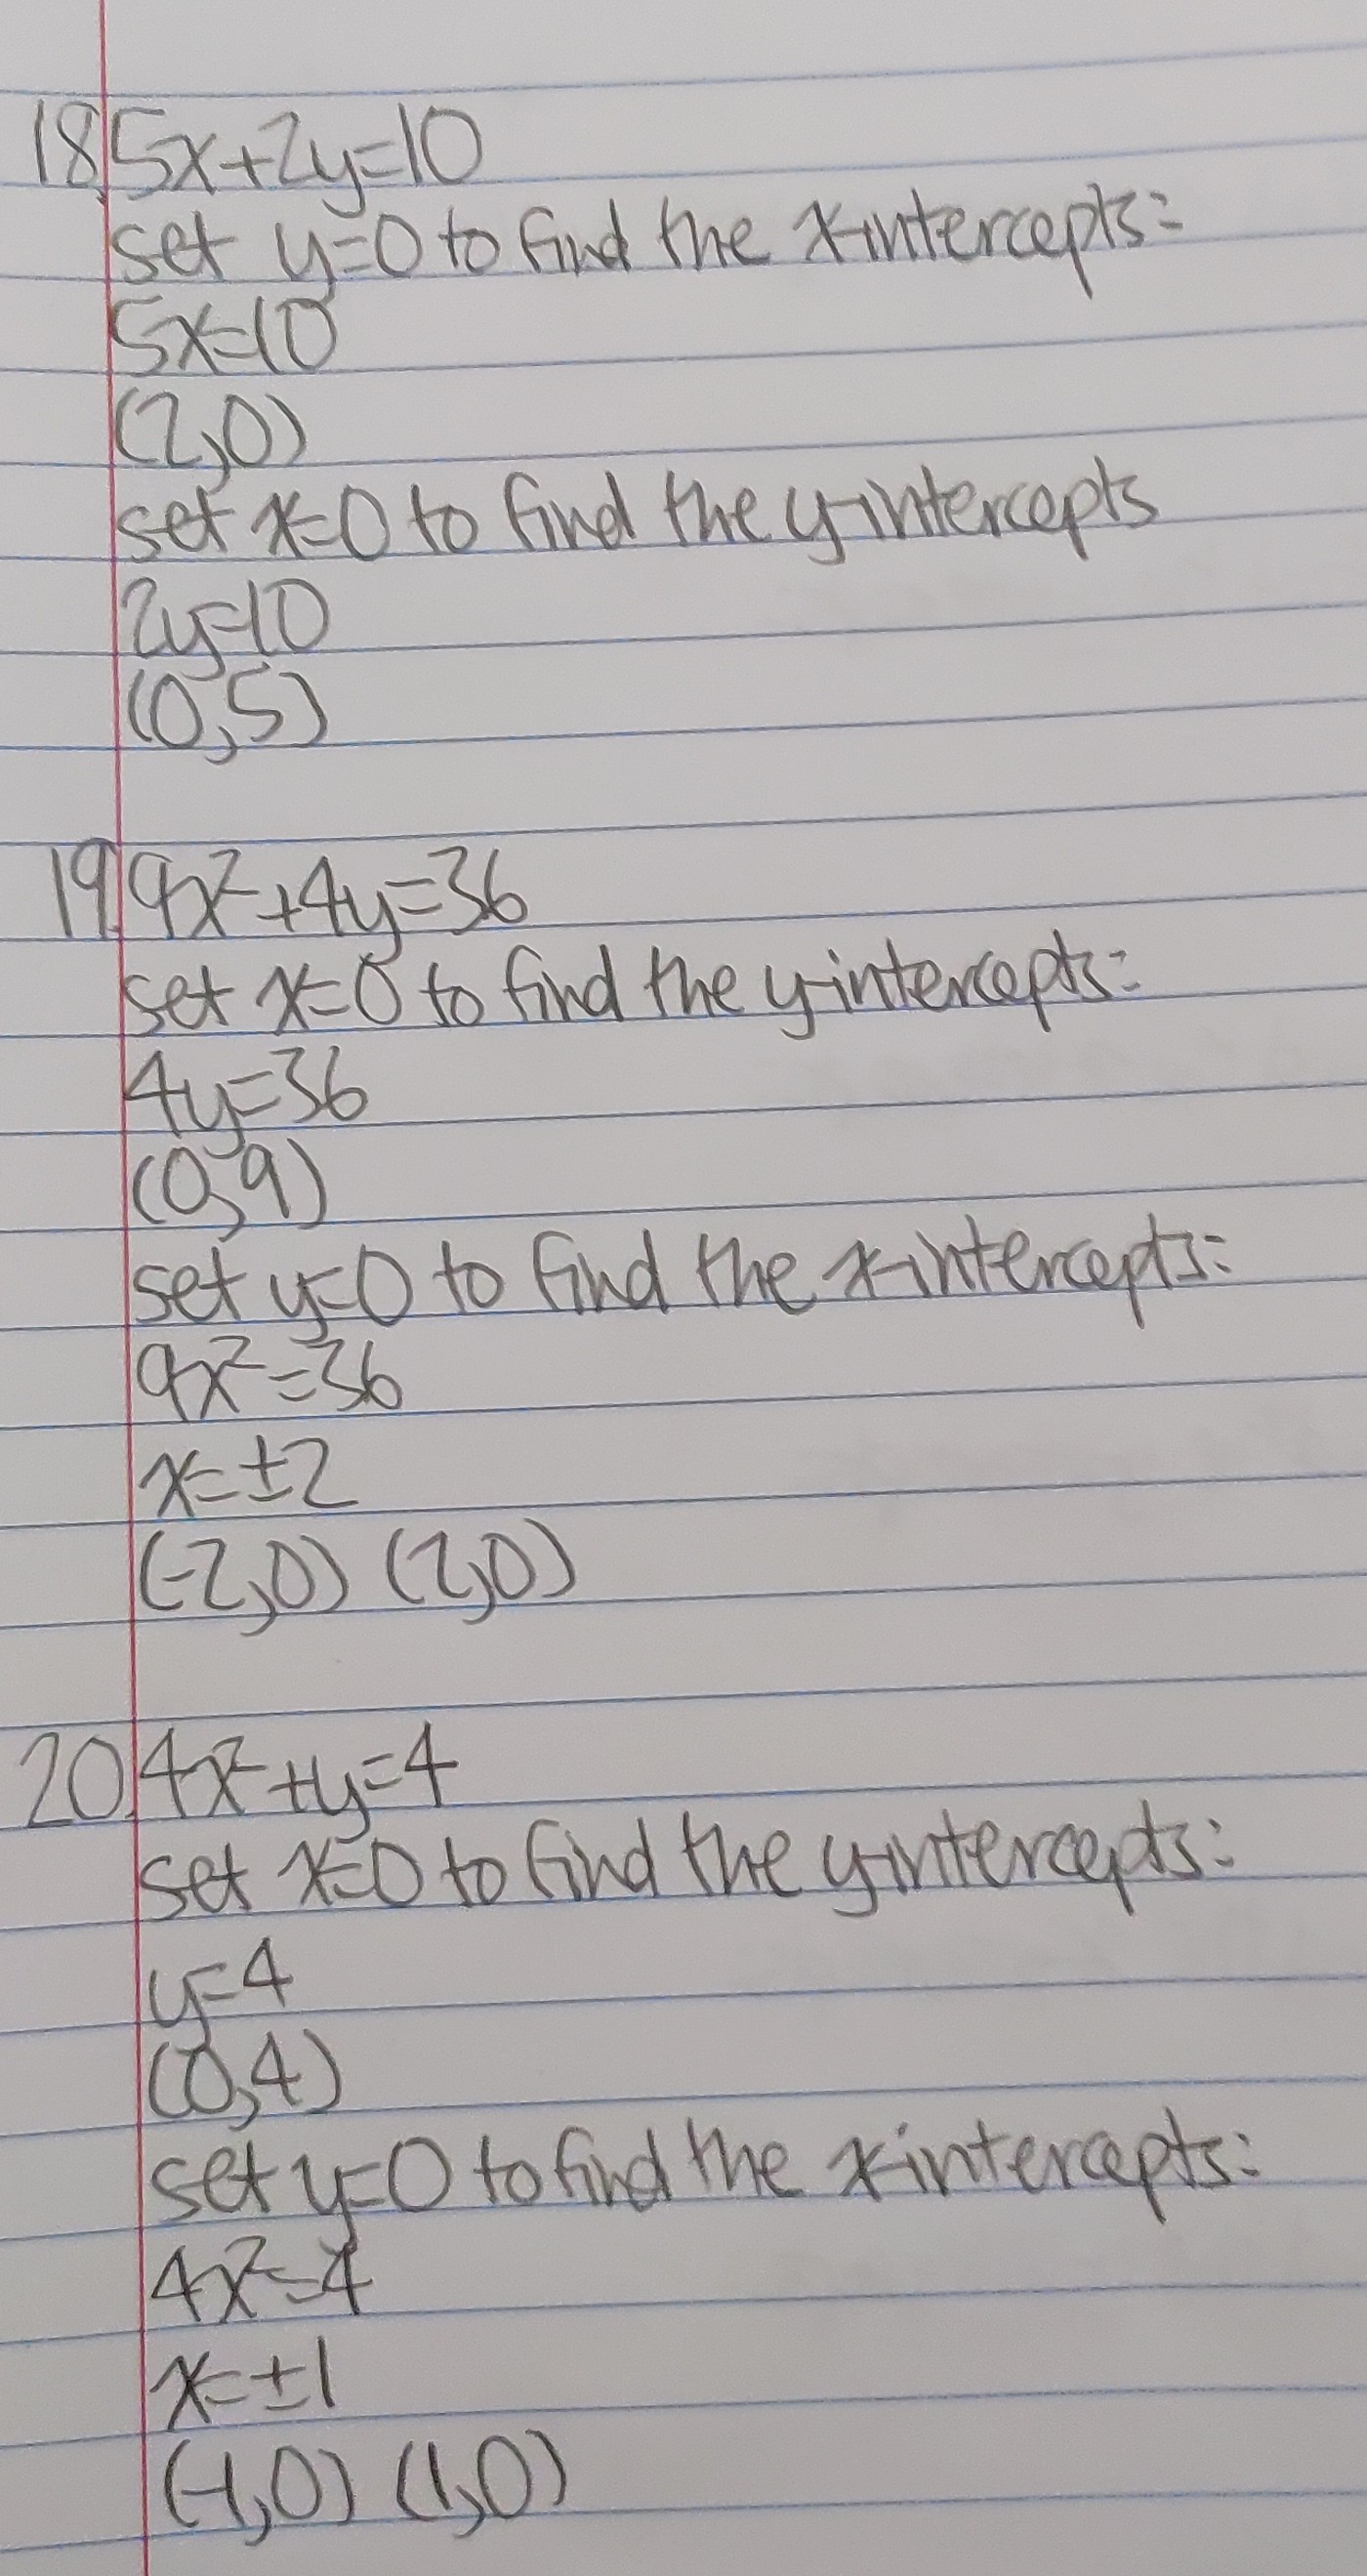 18. 5x+2y=10
set y=0 to find the x-intercepts:
5x=10
(2,0)
set x=0 to find the y-intercepts
2y=10
(0,5)
19. 9x²+4y=36
set x=0 to find the y-intercepts:
4y=36
(0,9)
set y=0 to find the x-intercepts:
9x²=36
x=±2
(-2,0) (2,0)
20. 4x²+y=4
set x=0 to find the y-intercepts:
y=4
(0,4)
set y=0 to find the x-intercepts:
4x²=4
x=±1
(-1,0) (1,0)